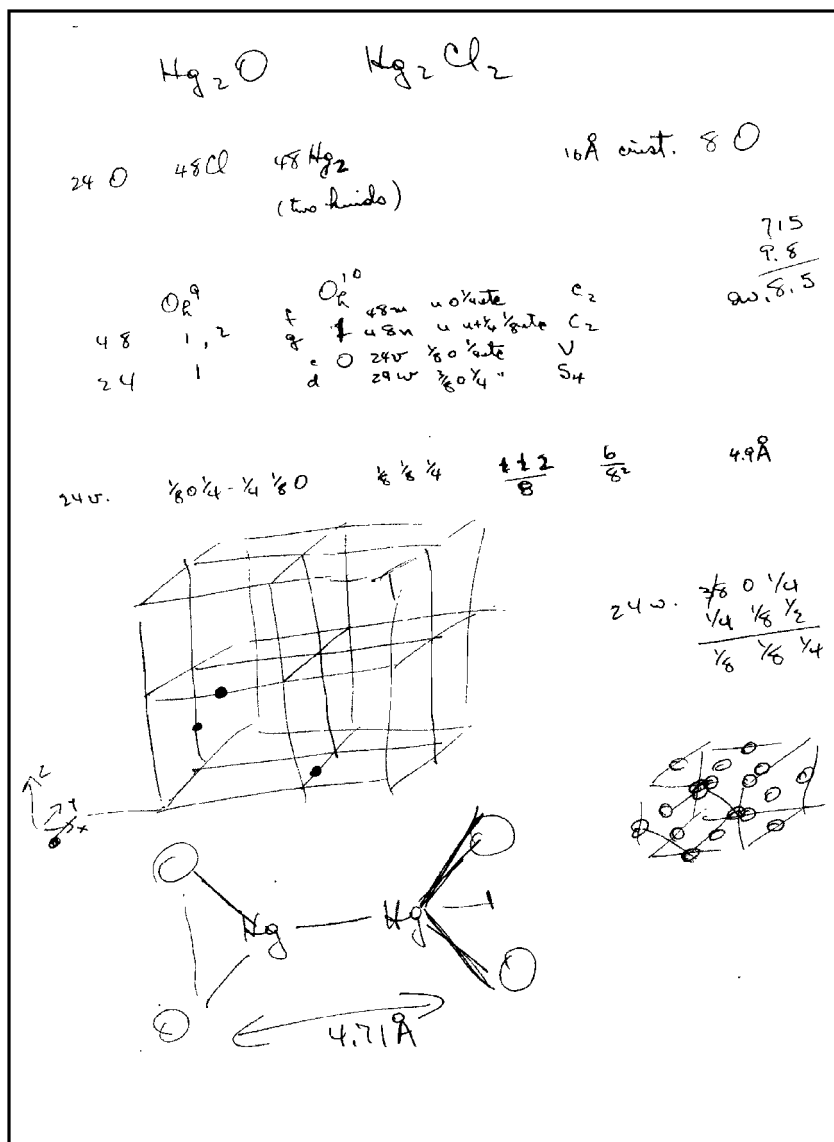 Hg2O Hg2Cl2
24 O 48Cl 48Hg2 16Å crist. 8 O
(two kinds)
715
9.8
av. 8.5
Oh^9 Oh^10
f 48u u 0 1/4 etc C2
48 1, 2 g 48n u u+1/4 1/8 etc C2
c O 24v 1/8 0 1/4 etc V
24 1 d 24w 3/8 0 1/4 " S4
24v. 1/8 0 1/4 - 1/4 1/8 0 1/8 1/8 1/4 1 1 2/8 6/8² 4.9Å
24w. 3/8 0 1/4
1/4 1/8 1/2
1/8 1/8 1/4
Z
Y
X
Hg Hg
4.71Å